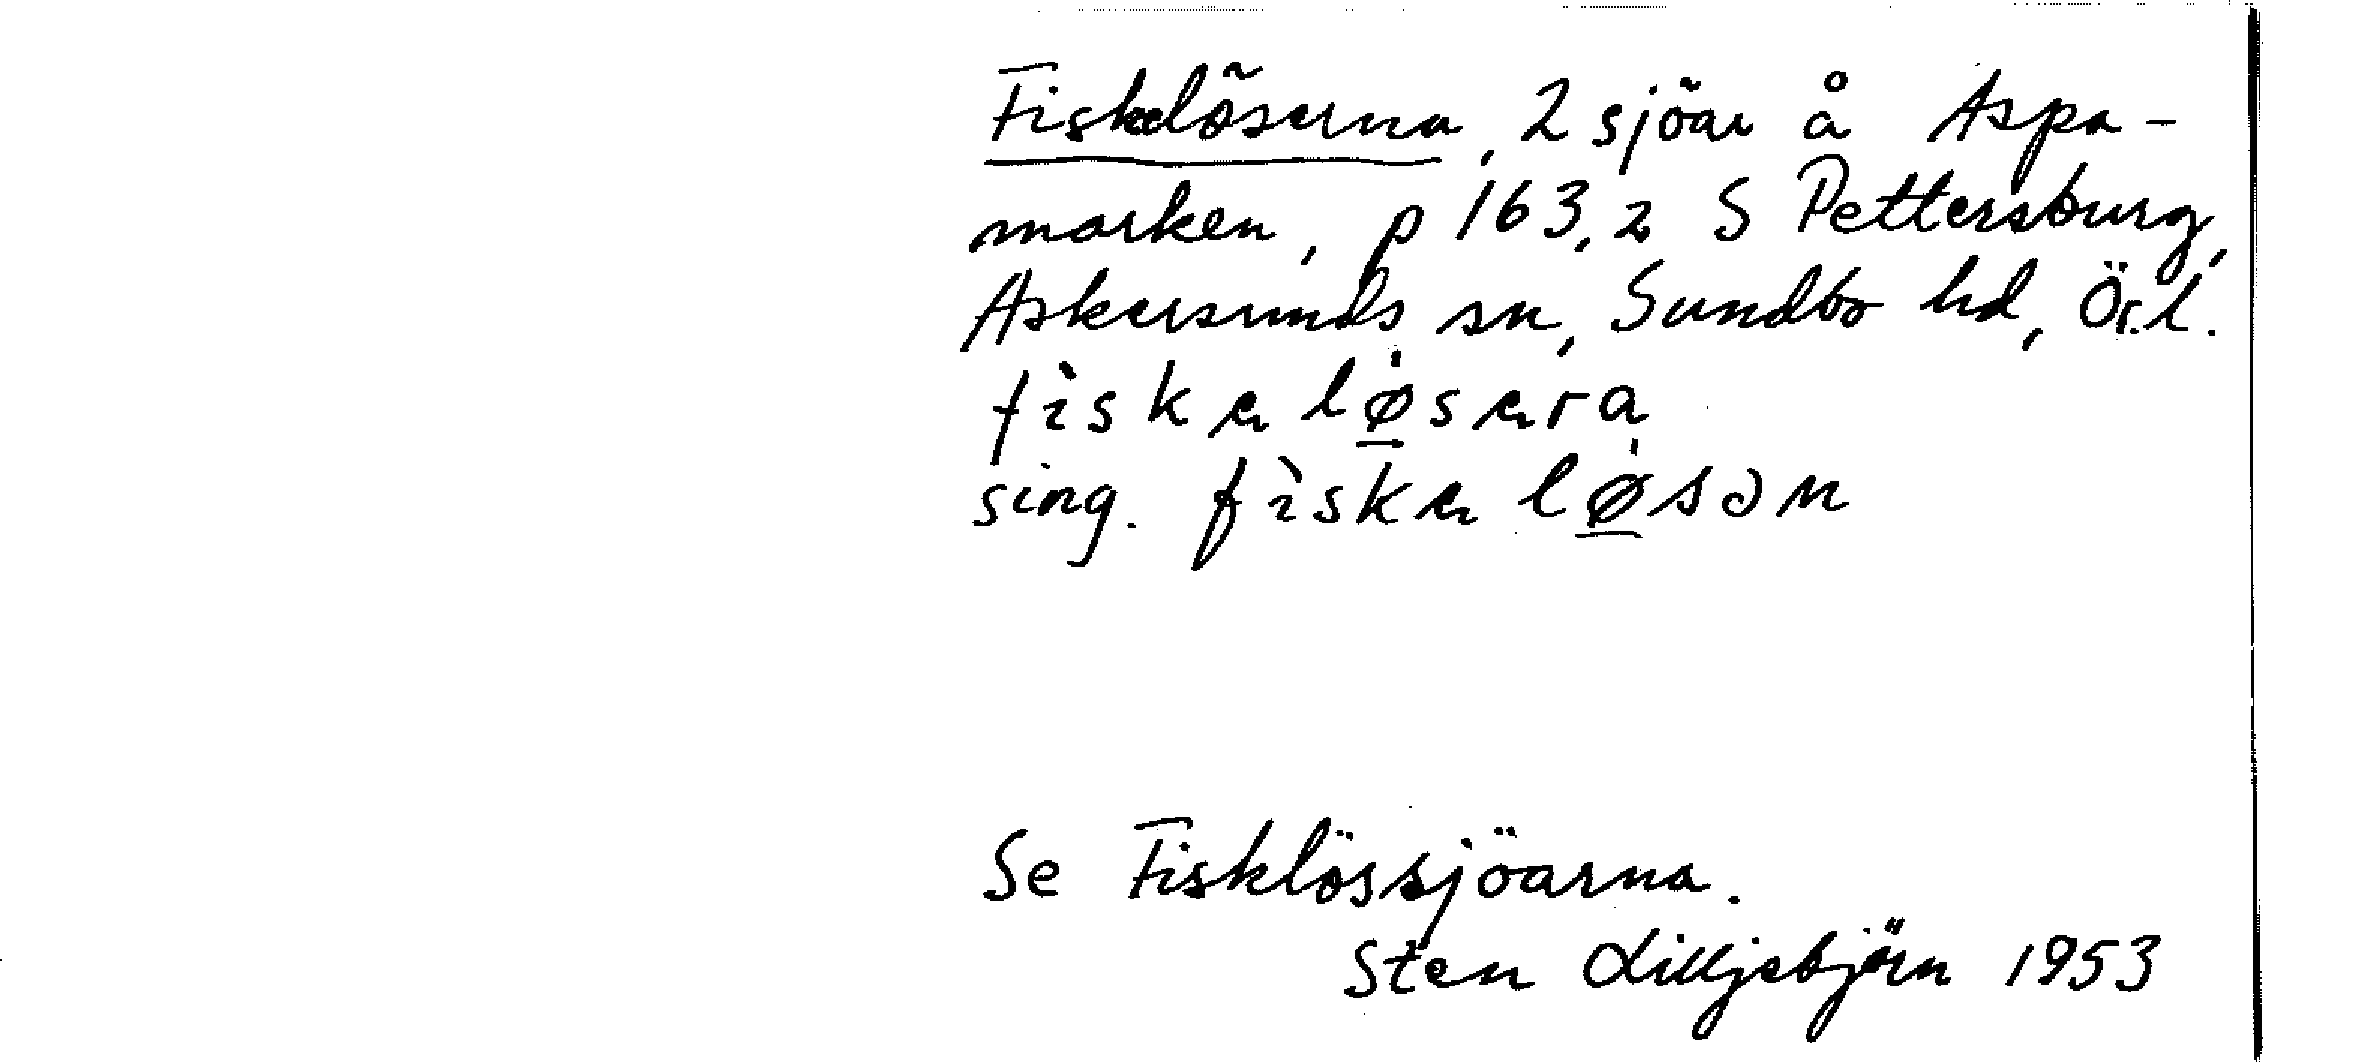 Fiskelöserna, 2 sjöar å Aspa-
marken, p 163,2 S Pettersburg,
Askersunds sn, Sundbo hd, Ör.l.
fìskaløsara
sing. fìskaløsən
Se Fisklössjöarna.
Sten Lilljebjörn 1953